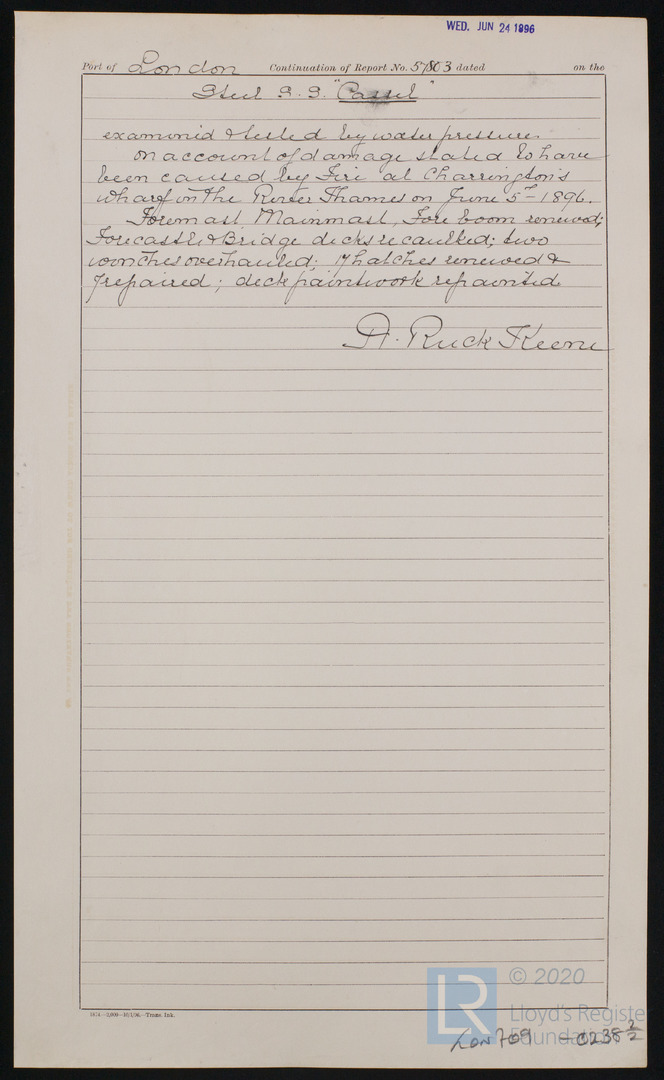 WED. JUN 24 1896
Port of London Continuation of Report No. 57803 dated on the
Steel S.S. "Cassel"
examined & tested by water pressure.
On account of damage stated to have
been caused by Fire at Charrington's
wharf in the River Thames on June 5th 1896.
Foremast, Mainmast, Fore boom renewed;
Forecastle & Bridge decks recaulked; two
winches overhauled; 17 hatches renewed &
7 repaired; deck paintwork repainted.
A. Ruck Keene
Trans. Ink.
© 2020
LR
Lloyd's Register
Foundation
LON 709 - 0238 2/2